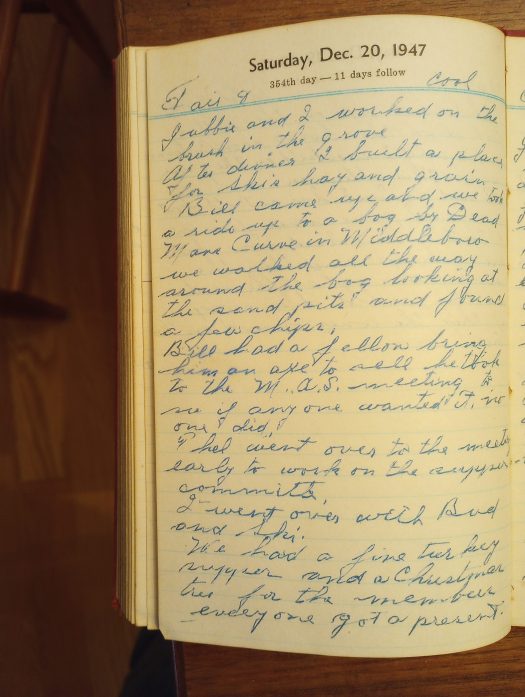 Saturday, Dec. 20, 1947
354th day — 11 days follow
Fair 9 cool
Tubbie and I worked on the
brush in the grove
After dinner I built a place
for Ski's hay and grain
Bill came up and we took
a ride up to a bog by Dead
Mans Curve in Middleboro
we walked all the way
around the bog looking at
the sand pits and found
a few chips.
Bill had a fellow bring
him an axe to sell he took
to the M.A.S. meeting to
see if anyone wanted it, no
one did.
Thel went over to the meeting
early to work on the supper
committe,
I went over with Bud
and Ski.
We had a fine turkey
supper and a Christmas
tree for the members
everyone got a present.